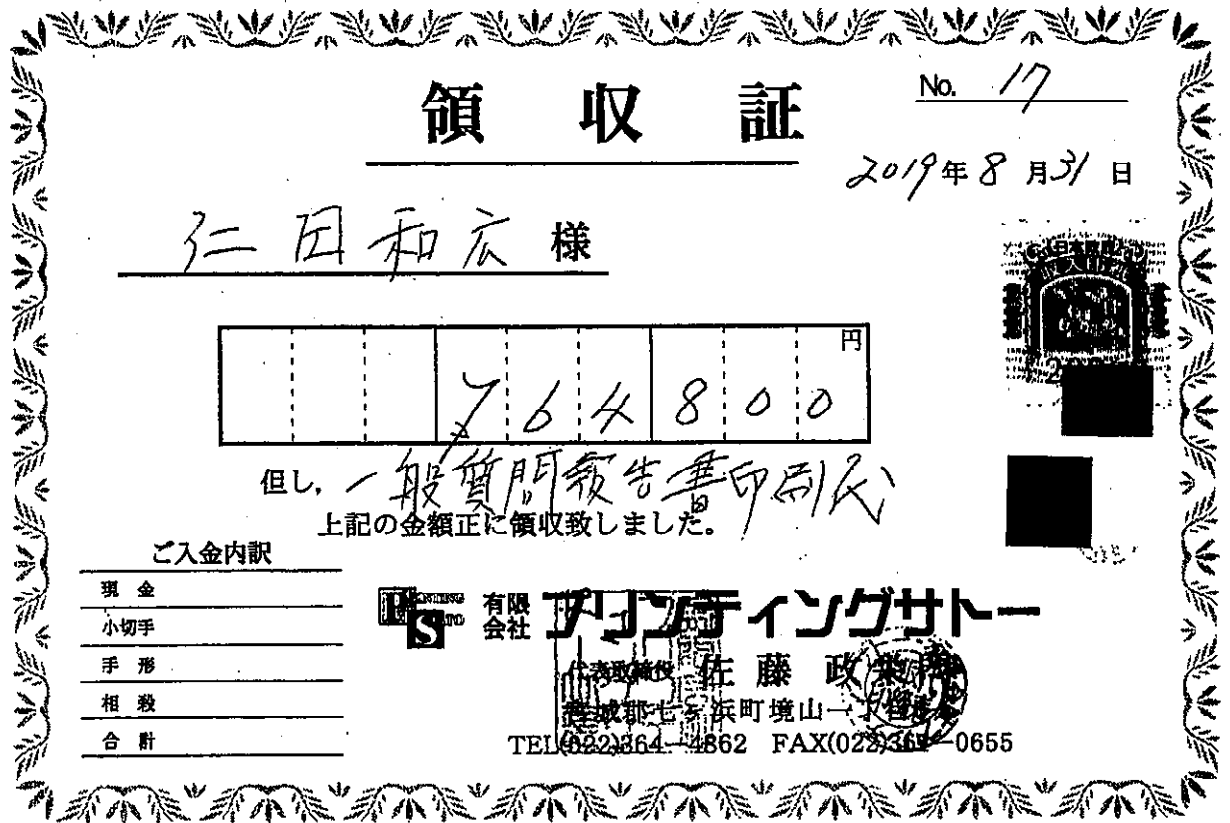 領収証
No. 17
2019年8月31日
仁田和広様
円
764800
但し、一般質問報告書印刷代
上記の金額正に領収致しました。
ご入金内訳
現金
小切手
手形
相殺
合計
PRINTING SATO
有限会社 プリンティングサトー
代表取締役 佐藤政
宮城郡七ヶ浜町境山一丁目
TEL(022)364-4862 FAX(022)364-0655
日本政府
収入印紙